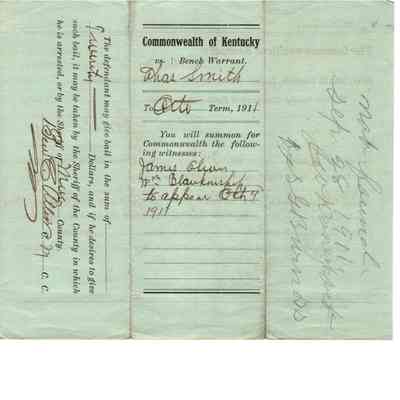 The defendant may give bail in the sum of
Twenty Dollars, and if he desires to give
such bail, it may be taken by the Sheriff of the County in which
he is arrested, or by the Sheriff of County.
C. C.
Commonwealth of Kentucky
vs. Bench Warrant.
Chas Smith
To Octo Term, 1911
You will summon for
Commonwealth the follow-
ing witnesses:
James Oliver
Wm Blankenship
to appear Octo 9
1911
Sep 28 1911